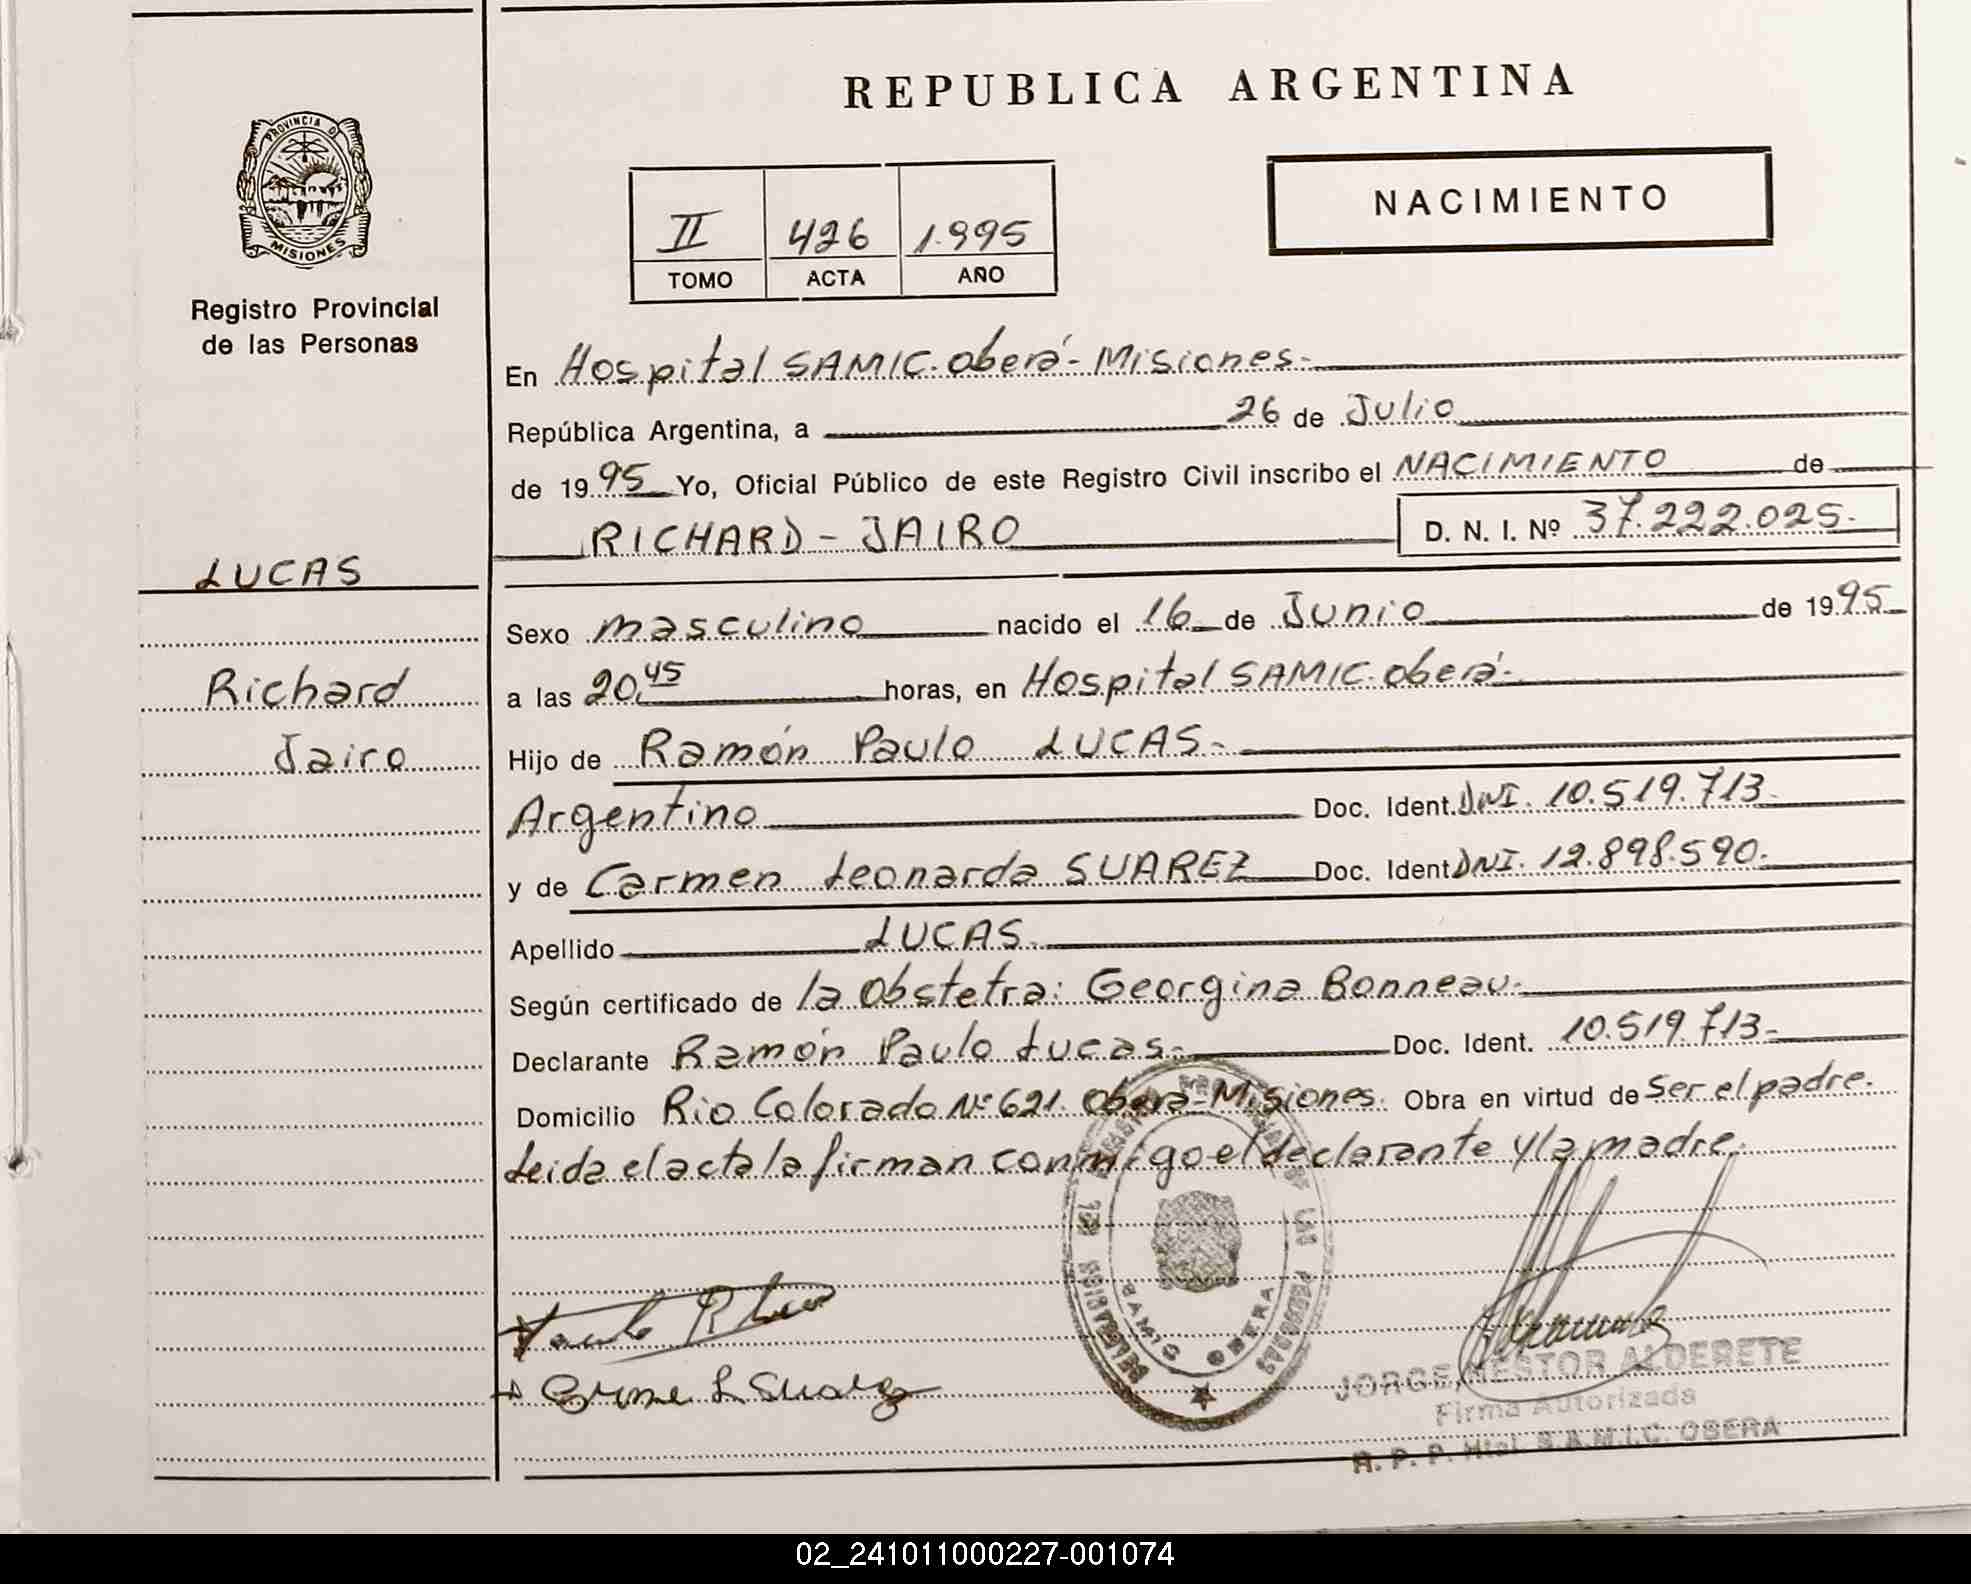 REPUBLICA ARGENTINA
PROVINCIA D
MISIONES
Registro Provincial
de las Personas
II 426 1.995
TOMO ACTA AÑO
NACIMIENTO
En Hospital SAMIC. oberá - Misiones.
República Argentina, a 26 de Julio
de 1995 Yo, Oficial Público de este Registro Civil inscribo el NACIMIENTO de
RICHARD - JAIRO D. N. I. Nº 37.222.025.
LUCAS
Richard
Jairo
Sexo masculino nacido el 16 de Junio de 1995
a las 20,45 horas, en Hospital SAMIC. oberá.
Hijo de Ramón Paulo LUCAS.
Argentino Doc. Ident. DNI. 10.519.713.
y de Carmen Leonarda SUAREZ Doc. Ident DNI. 12.898.590.
Apellido LUCAS.
Según certificado de la obstetra: Georgina Bonneau.
Declarante Ramón Paulo Lucas. Doc. Ident. 10.519.713.
Domicilio Rio Colorado Nº 621. oberá - Misiones. Obra en virtud de Ser el padre.
Leida el acta la firman conmigo el declarante y la madre.
OBERA
JORGE NESTOR ALDERETE
Firma Autorizada
R. P. P. Htal. S.A.M.I.C. OBERA
02_241011000227-001074